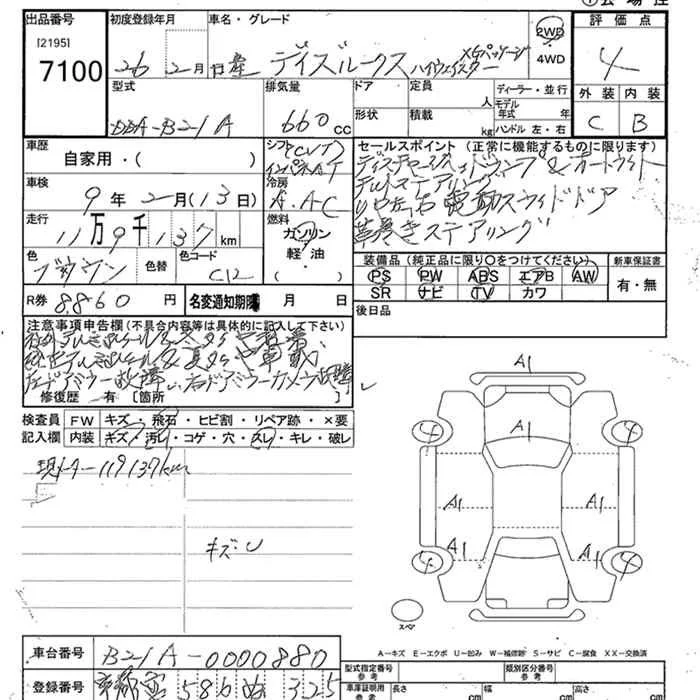 ①会場控
出品番号 初度登録年月 車名・グレード 2WD 4WD 評価点
[2195]
7100
26 2月 日産 デイズルークス ハイウェイスター XGパッケージ
4
型式 排気量 ドア 定員 人 ディーラー・並行 外装 内装
形状 積載 kg モデル年式 年 ハンドル 左・右
DBA-B21A 660cc C B
車歴 自家用・( )
シフト (CVT) インパネAT
セールスポイント (正常に機能するものに限ります)
車検 9年2月(13日)
冷房 A.AC
ディスチャージヘッドランプ&オートライト
チルトステアリング
リヤ左右電動スライドドア
革巻きステアリング
走行 11万9千137km
燃料 ガソリン 軽油 ( )
色 ブラウン 色替 色コード C12
装備品 (純正品に限り○をつけてください) 新車保証書
PS PW ABS エアB AW 有・無
SR ナビ TV カワ
R券 8860円 名変通知期限 月 日
後日品
注意事項申告欄 (不具合内容等は具体的に記入して下さい)
左ドアミラー故障、右ドアミラーカメラ故障
修復歴 有 [箇所 ]
検査員 FW キズ・飛石・ヒビ割・リペア跡・×要
記入欄 内装 キズ・汚レ・コゲ・穴・スレ・キレ・破レ
現メーター119137km
キズ・U
A1
A1
4 4
A1 A1
A1 A1
4 4
A1
スペア
A－キズ E－エクボ U－凹み W－補修跡 S－サビ C－腐食 XX－交換済
車台番号 B21A-0000880
登録番号 京都 586 325
型式指定番号 参考 類別区分番号 参考
車庫証明用 参考 長さ cm 幅 cm 高さ cm